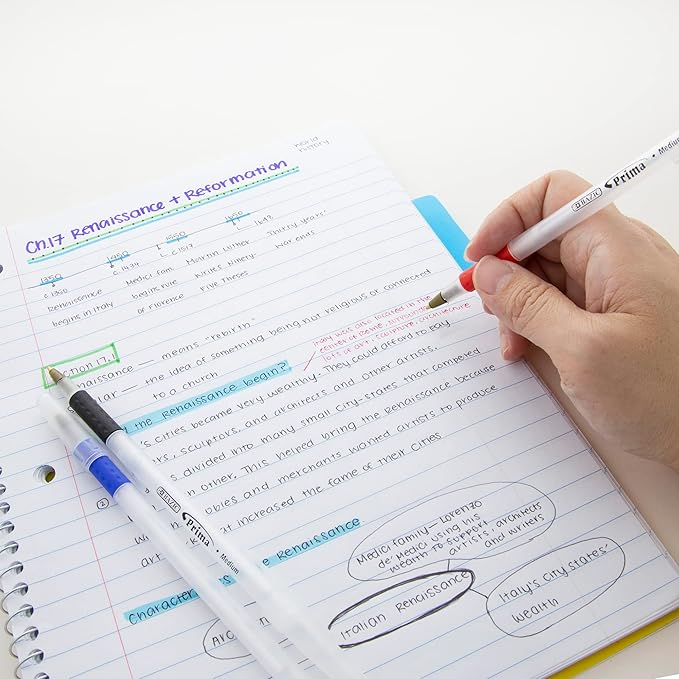 world
history
Ch.17 Renaissance + Reformation
1350 1450 1550 1650
c. 1350 c. 1434 c. 1517 1648
Renaissance begins in Italy
Medici fam. begins rule of Florence
Martin Luther Ninety-Five Theses
Thirty Years' war ends
ction 17.1
naissance — means "rebirth"
lar — the idea of something being not religious or connected
to a church
Italy was also located in the
center of Rome, surround
lots of art, sculpture, architecture
the Renaissance begin?
's cities became very wealthy - They could afford to pay
rs, sculptors, and architects and other artists.
s divided into many small city-states that competed
n other. This helped bring the Renaissance because
obles and merchants wanted artists to produce
at increased the fame of their cities
2
e Renaissance
Character
art
Medici family - Lorenzo
de' Medici using his
wealth to support
artists, architects
and writers.
Italian Renaissance
Italy's city states'
wealth
BAZIC Prima Medium
BAZIC Prima Medium